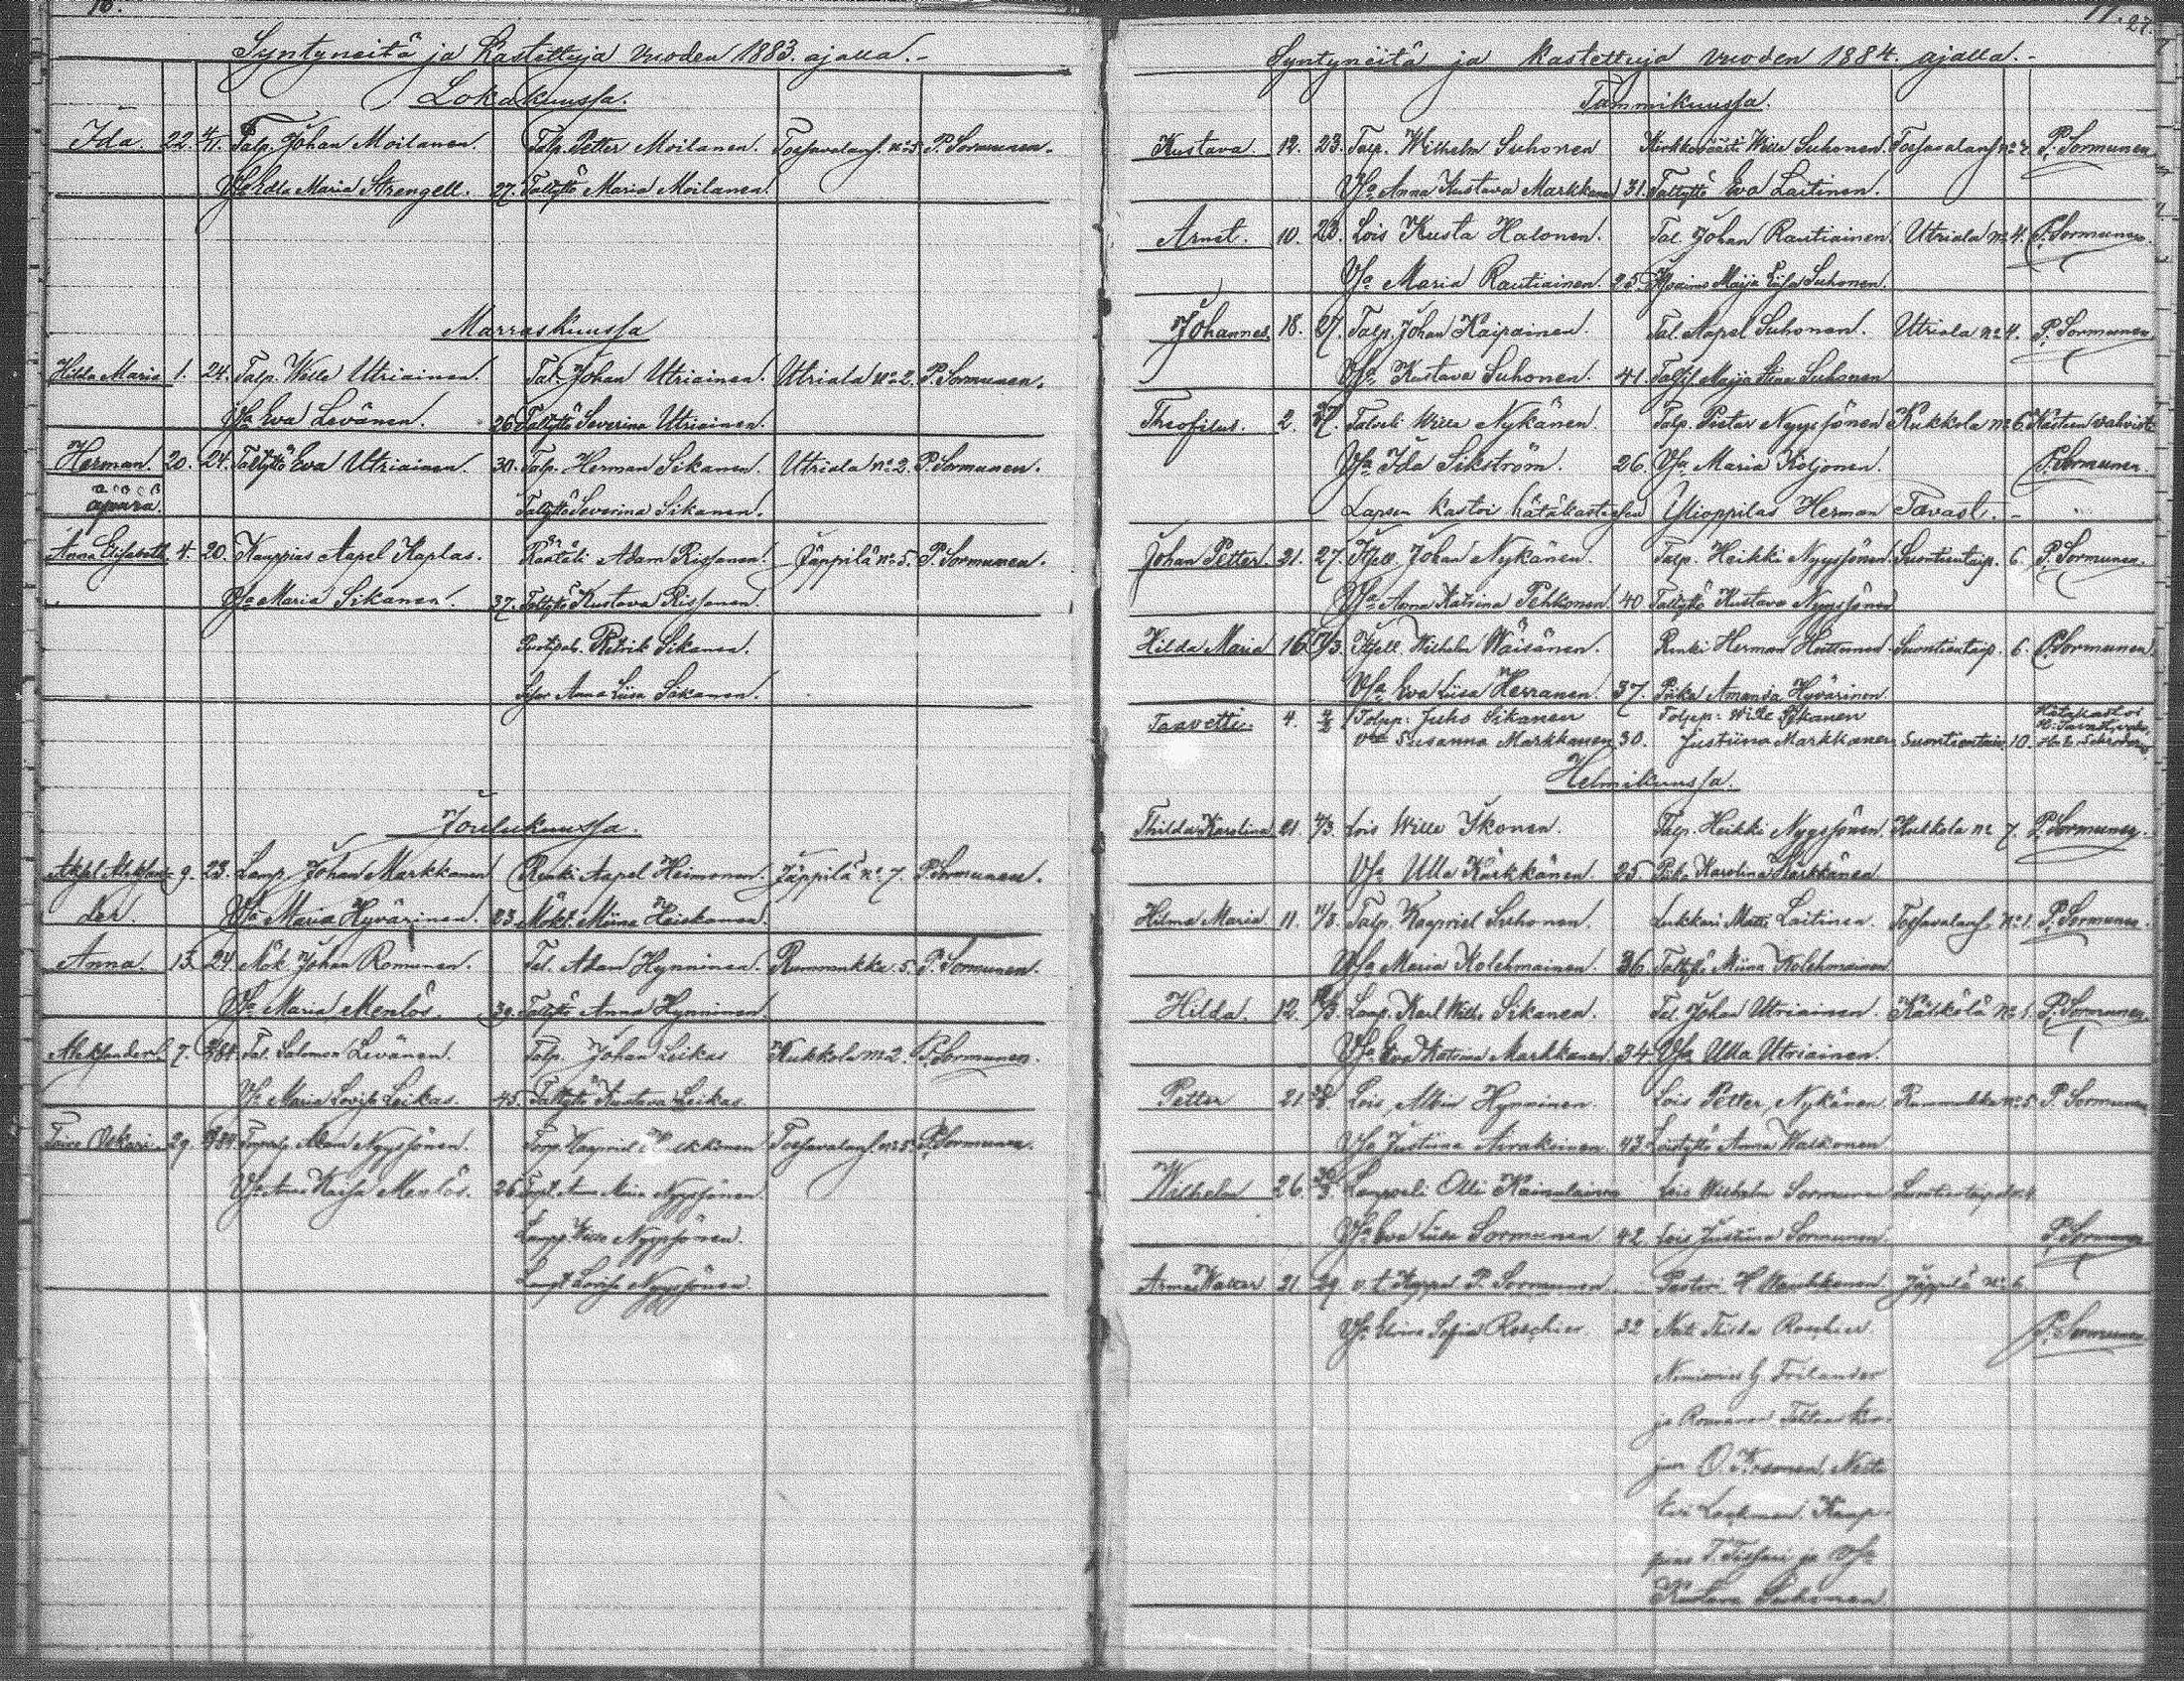 16.
Syntyneitä ja Kastettuja vuoden 1883. ajalla.-
Lokakuussa.
Ida. 22. 4/11. Talp. Johan Moilanen. Talp. Petter Moilanen. Toessavalans. P. Sormunen.
Edla Maria Strengell. 27. Taltytö Maria Moilanen.
Marraskuussa
Hilda Maria 1. 24. Talp. Wille Utriainen. Tal. Johan Utriainen. Utriala No 2. P. Sormunen.
Eva Levänen. 26 Taltytö Severina Utriainen.
Herman. 20. 24. Taltytö Eva Utriainen. 30. Talp. Herman Sikanen. Utriala No 2. P. Sormunen.
apara. Taltytö Severina Sikanen.
Anna Elisabeth 4. 20. Kauppias Aapel Kaplas. Räätäli Adam Rissanen. Jäppilä No 5. P. Sormunen.
Vsa Maria Sikanen. 37. Taltytö Kustava Rissanen.
Petrik Sikanen.
Anna Liisa Sikanen.
Joulukuussa.
Aksel Aleksan- 9. 23. Lamp. Johan Markkanen Renki Aapel Heimonen. Jäppilä No 7. P. Sormunen.
der. Vsa Maria Hyvärinen. 23. Mökt. Miina Heiskanen.
Anna. 13. 24. Mök. Johan Romunen. Tal. Adam Hynninen. Rummukka 5. P. Sormunen.
Vsa Maria Menlös. 39. Taltytö Anna Hynninen.
Aleksander. 7. Tal. Salomon Levänen. Talp. Johan Leikas Kukkola No 2. P. Sormunen.
Vsa Maria Lovisa Leikas. 45. Taltytö Kustava Leikas.
Oskari 29. Adam Nyyssönen. Torp. Kaapriel Toessavalans. No 5. P. Sormunen.
Vsa Anna Kaisa Menlös. 26 Anna Miina Nyyssönen.
Wille Nyyssönen.
Lovisa Nyyssönen.
17. 27.
Syntyneitä ja Kastettuja vuoden 1884. ajalla.-
Tammikuussa.
Kustava 12. 23. Talp. Wilhelm Suhonen Kirkkoväärti Wille Suhonen. Toessavalans. P. Sormunen
Vsa Anna Kustava Markkanen 31. Taltytö Eva Laitinen.
Arnet. 10. 23. Lois Kusta Halonen. Tal. Johan Rautiainen. Utriala No 4. P. Sormunen.
Vsa Maria Rautiainen. 25. Maija Liisa Suhonen.
Johannes. 18. 27. Talp. Johan Kaipainen. Tal. Aapel Suhonen. Utriala No 4. P. Sormunen.
Vsa Kustava Suhonen. 41. Maija Stina Suhonen
Theofilus. 2. Wille Nykänen. Talp. Petter Nyyssönen Kukkola No 6. Kasteen vahvisti
Vsa Ida Sikström. 26. Vsa Maria Koljonen. P. Sormunen.
Lapsen kastoi hätäkasteessa Ylioppilas Herman Tavast.-
Johan Petter. 21. 27. Itsell. Johan Nykänen. Talp. Heikki Nyyssönen. Suontientaip. 6. P. Sormunen.
Vsa Anna Katrina Pehkonen. 40 Taltytö Kustava Nyyssönen
Hilda Maria 16. Itsell. Wilhelm Wäisänen. Renki Herman Huttunen. Suontientaip. 6. P. Sormunen.
Vsa Eva Liisa Herranen. 37. Piika Amanda Hyvärinen.
Taavetti. 4. Talpp: Juho Sikanen Talpp: Wille Sikanen Hätäkastoi
Vsa Susanna Markkanen 30. Justiina Markkanen Suontientaip. 10.
Helmikuussa.
Thilda Karolina 21. Lois Wille Ikonen. Talp. Heikki Nyyssönen. Kukkola No 7. P. Sormunen.
Vsa Ulla Kärkkänen. 25. Piika Karolina Kärkkänen
Hilma Maria 11. Talp. Kaapriel Suhonen. Lukkari Matti Laitinen. Toessavalans. No 1. P. Sormunen.
Vsa Maria Kolehmainen. 36. Taltytö Miina Kolehmainen.
Hilda. 12. Lamp. Karl Wilh. Sikanen. Tal. Johan Utriainen. No 1. P. Sormunen.
Vsa Eva Katrina Markkanen. 34. Vsa Ulla Utriainen.
Petter 21. Lois Albin Hynninen. Lois Petter Nykänen. Rummukka No 5. P. Sormunen
Vsa Justiina Airaksinen. 43. Loistytö Anna Walkonen
Wilhelm 26. Olli Kainulainen Lois Wilhelm Sormunen
Vsa Eva Liisa Sormunen 42. Lois Justiina Sormunen. P. Sormunen
Armas Walter 21 29. v.t. Kappal. P. Sormunen. Pastori H. Jäppilä No 6.
Vsa Elviira Sofia Roschier. 32 Neiti Thilda Roschier. P. Sormunen.
Nimismies G. Frilander
ja Rouvansa
Neiti
Kaup-
pias ja Vsa
Kustava Suhonen